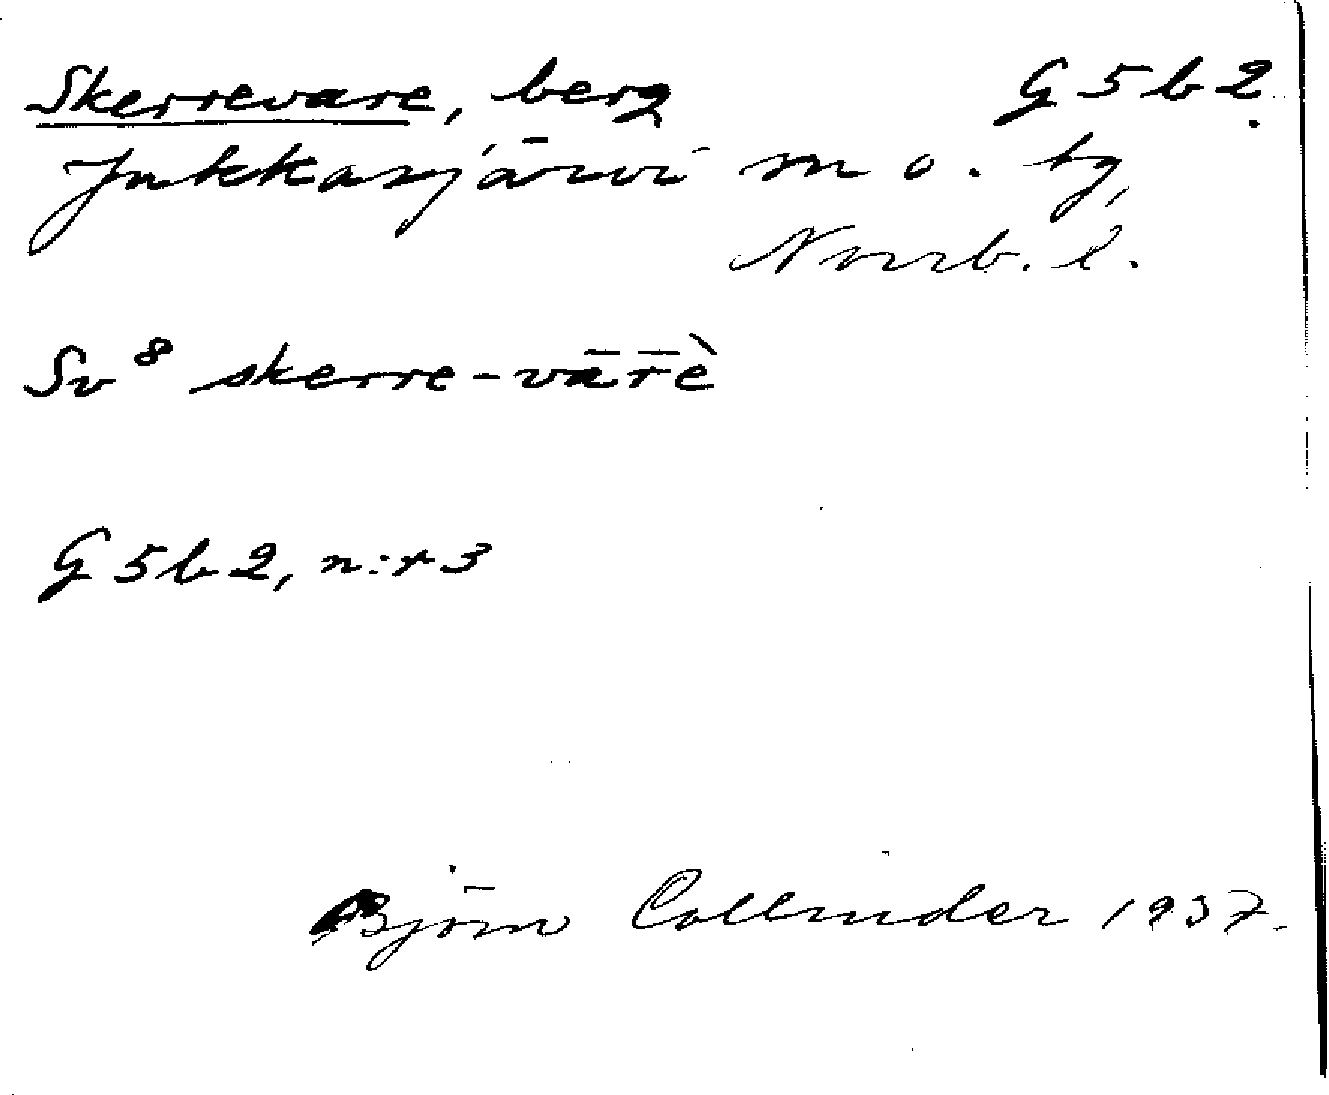 Skerrevare, berg G5b2.
Jukkasjärvi sn o. tg,
Norrb. l.
Sv⁸ skerre-vār̄ḕ
G5b2, n:r 3
Björn Collinder 1937.